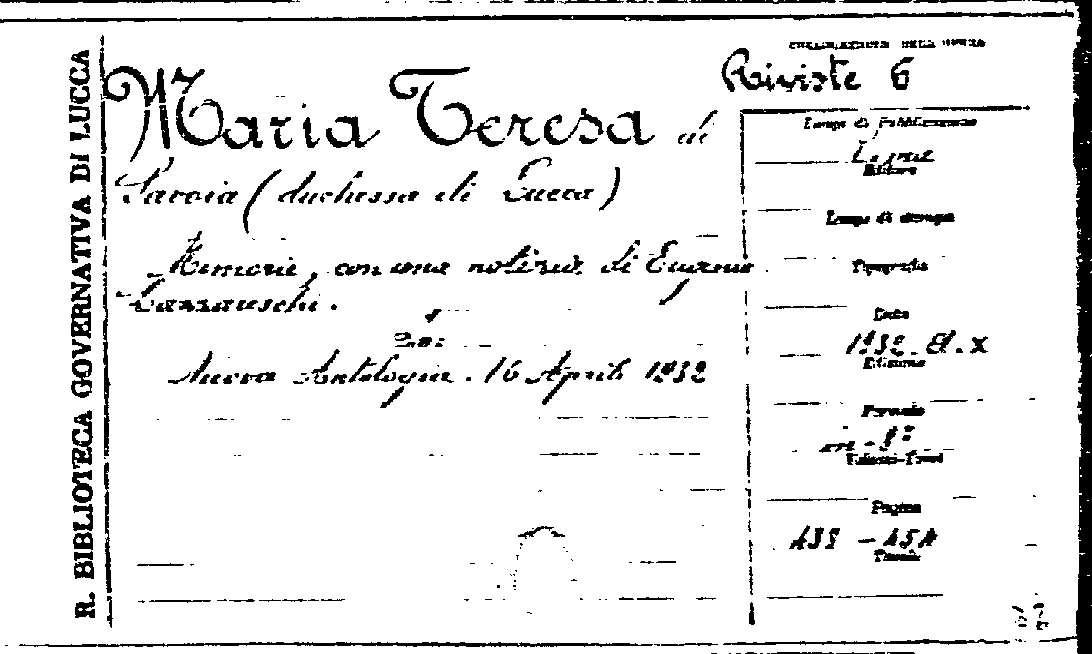 R. BIBLIOTECA GOVERNATIVA DI LUCCA
COLLOCAZIONE DELL'OPERA
Riviste 6
Maria Teresa di
Savoia (duchessa di Lucca)
Memorie, con una notizia di Eugenio
Lazzareschi.
In:
Nuova Antologia. 16 Aprile 1932
Luogo di pubblicazione
Editore
Luogo di stampa
Tipografia
Data
1932. A. X
Edizione
Formato
in-8º
Volumi-Tomi
Pagine
Tavole